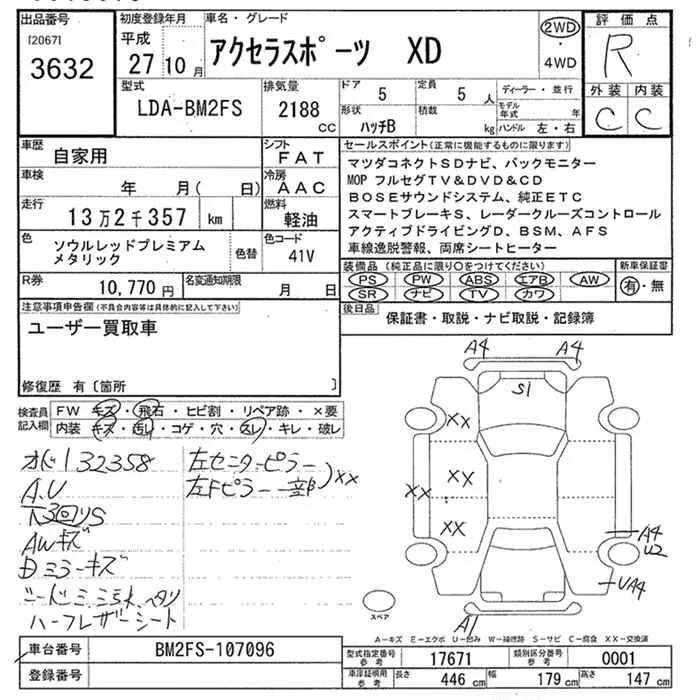 出品番号
[2067]
3632
初度登録年月
平成
27 10 月
車名・グレード
アクセラスポーツ XD
2WD
・
4WD
評価点
R
外装 内装
C C
型式
LDA-BM2FS
排気量
2188 cc
ドア 5
定員 5 人
形状 ハッチB
積載 kg
ディーラー・並行
モデル年式 年
ハンドル 左・右
車歴
自家用
シフト
FAT
車検
年 月( 日)
冷房
AAC
走行
13万2千357 km
燃料
軽油
色
ソウルレッドプレミアム
メタリック
色替
色コード
41V
R券
10,770 円
名変通知期限
月 日
セールスポイント(正常に機能するものに限ります)
マツダコネクトSDナビ、バックモニター
MOP フルセグTV&DVD&CD
BOSEサウンドシステム、純正ETC
スマートブレーキS、レーダークルーズコントロール
アクティブドライビングD、BSM、AFS
車線逸脱警報、両席シートヒーター
装備品(純正品に限り○をつけてください)
PS PW ABS エアB AW
SR ナビ TV カワ
新車保証書
有・無
後日品
保証書・取説・ナビ取説・記録簿
注意事項申告欄(不具合内容等は具体的に記入して下さい)
ユーザー買取車
修復歴 有〔箇所 〕
検査員
記入欄
FW キズ・飛石・ヒビ割・リペア跡・×要
内装 キズ・汚レ・コゲ・穴・スレ・キレ・破レ
オド132358
A.U
AWキズ
Dミラーキズ
ハーフレザーシート
左センターピラー
左Fピラー一部 )××
A4 A4
S1
XX
XX
XX
XX
A4
U2
UA4
A1
スペア
A-キズ E-エクボ U-凹み W-補修跡 S-サビ C-腐食 XX-交換済
車台番号
BM2FS-107096
登録番号
型式指定番号
参考
17671
類別区分番号
参考
0001
車庫証明用
参考
長さ 446 cm
幅 179 cm
高さ 147 cm